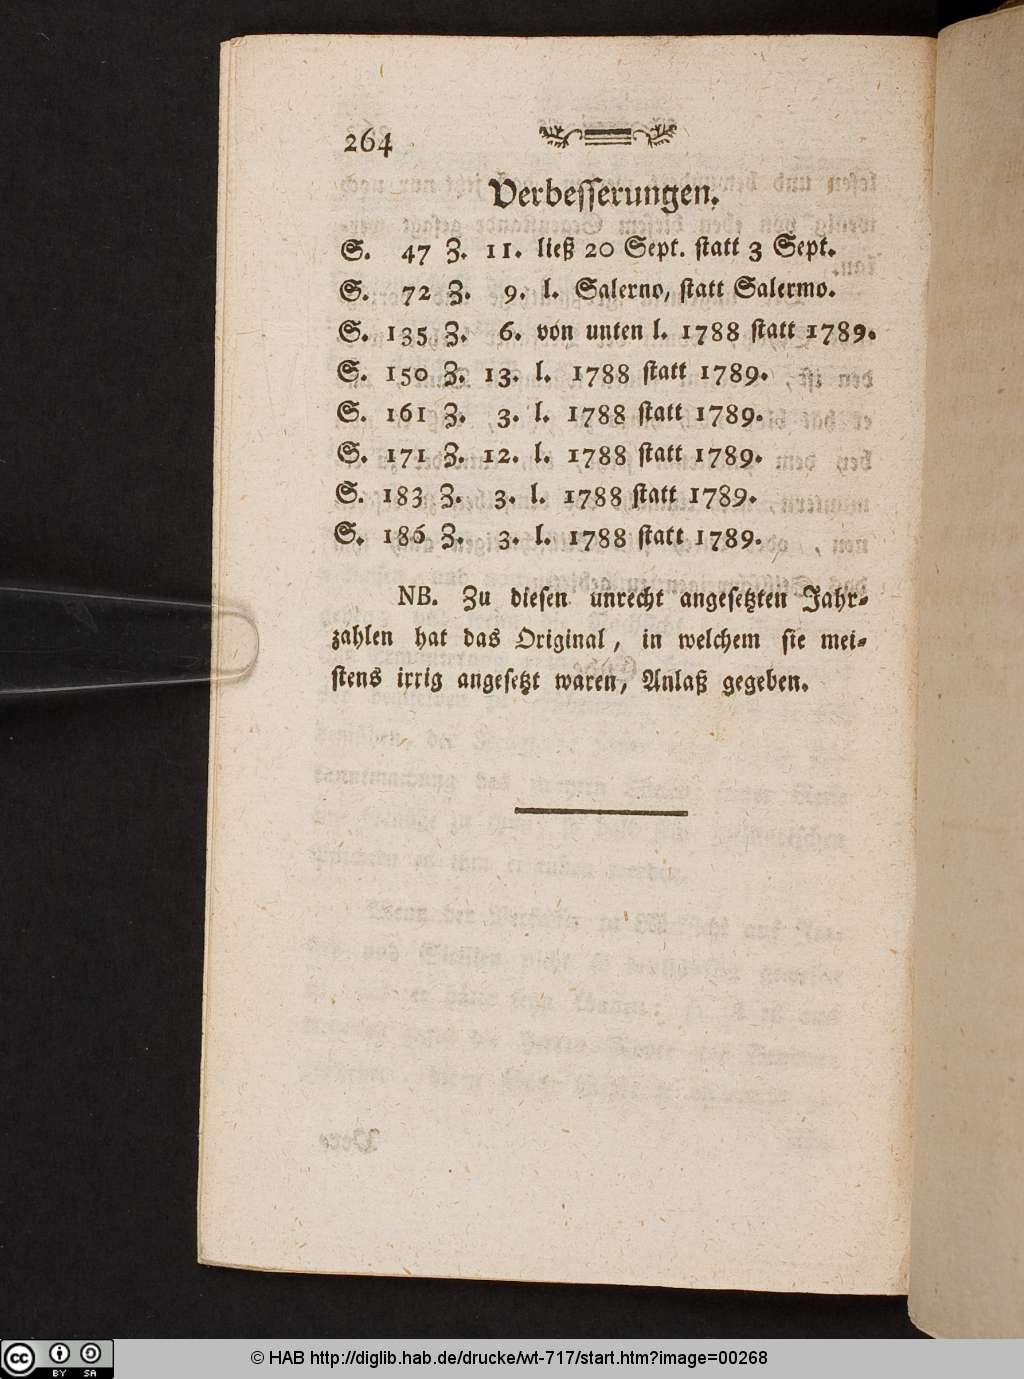 264
Verbesserungen.
S. 47 Z. 11. ließ 20 Sept. statt 3 Sept.
S. 72 Z. 9. l. Salerno, statt Salermo.
S. 135 Z. 6. von unten l. 1788 statt 1789.
S. 150 Z. 13. l. 1788 statt 1789.
S. 161 Z. 3. l. 1788 statt 1789.
S. 171 Z. 12. l. 1788 statt 1789.
S. 183 Z. 3. l. 1788 statt 1789.
S. 186 Z. 3. l. 1788 statt 1789.
NB. Zu diesen unrecht angesetzten Jahr-
zahlen hat das Original, in welchem sie mei-
stens irrig angesetzt waren, Anlaß gegeben.
cc BY SA
© HAB http://diglib.hab.de/drucke/wt-717/start.htm?image=00268